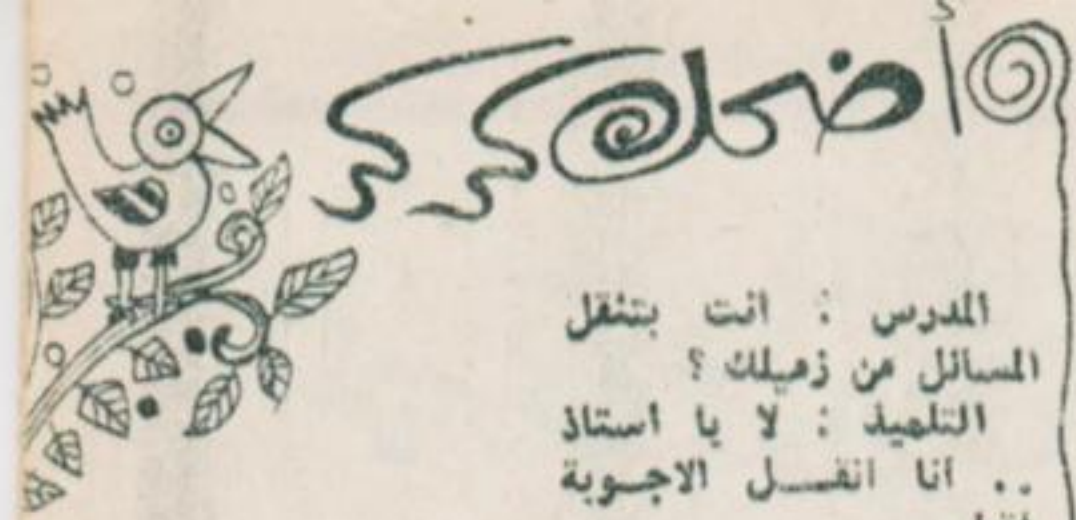 أضحك كركر
المدرس : أنت بتنقل
المسائل من زميلك ؟
التلميذ : لا يا أستاذ
.. أنا انقـل الاجـوبة